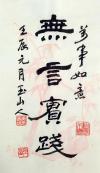 萬事如意
無言實踐
壬辰元月玉山人